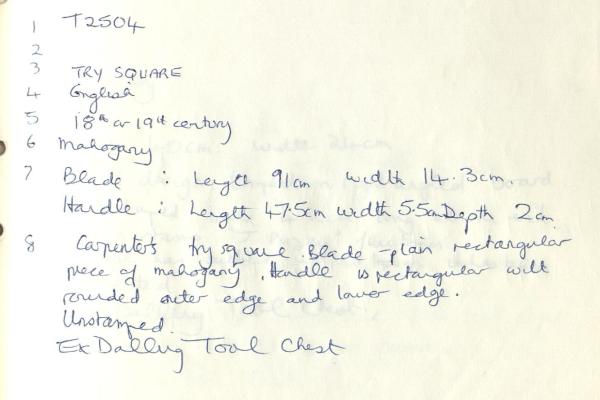 1 T2504
2
3 TRY SQUARE
4 English
5 18th or 19th century
6 Mahogany
7 Blade : Length 91cm width 14.3cm.
Handle : Length 47.5cm width 5.5cm Depth 2cm
8 Carpenters try square. Blade - plain rectangular
piece of mahogany. Handle is rectangular with
rounded outer edge and lower edge.
Unstamped.
Ex Dalling Tool Chest